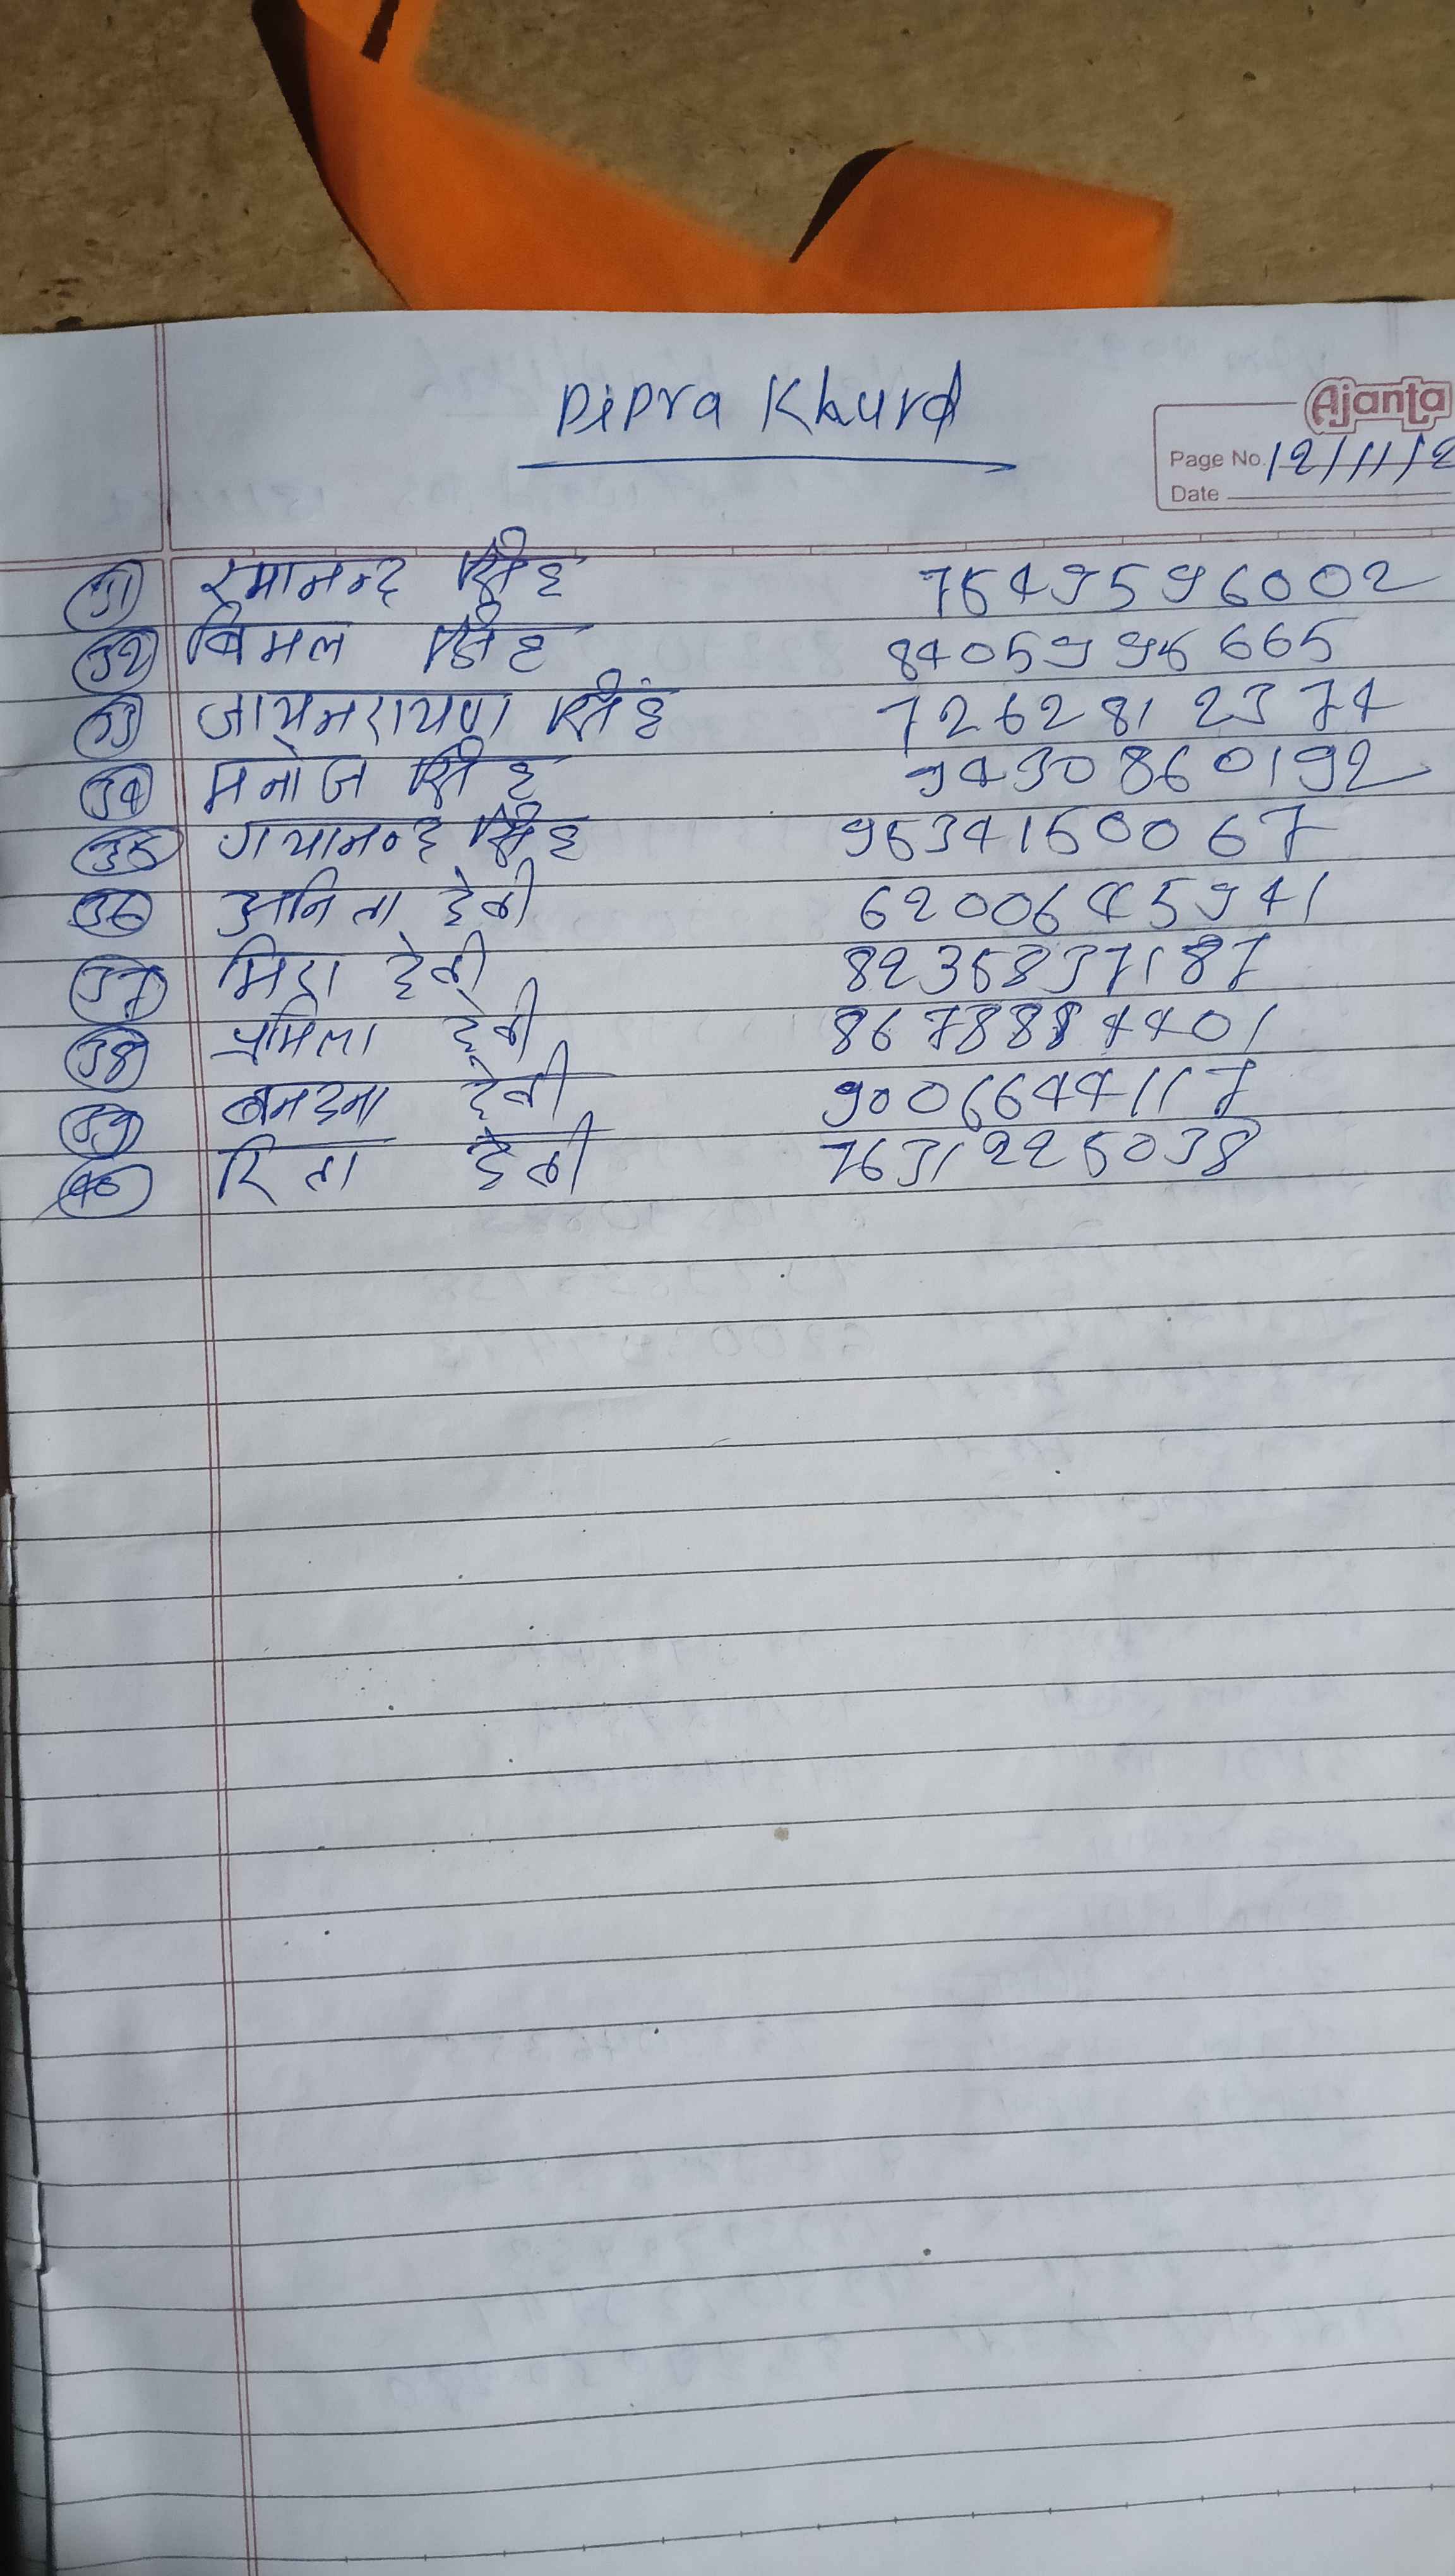 Pipra Khurd
Ajanta
Page No. 12/11/2
Date
31 रमानन्द सिंह 7549596002
32 बिमल सिंह 8405996665
33 जायनरायण सिंह 7262812374
34 मनोज सिंह 9430860192
35 गयानन्द सिंह 9534150067
36 अनिता देवी 6200645941
37 मिरा देवी 8235837187
38 प्रमिला देवी 8678884401
39 बनदना देवी 9006644117
40 रिता देवी 7631225038